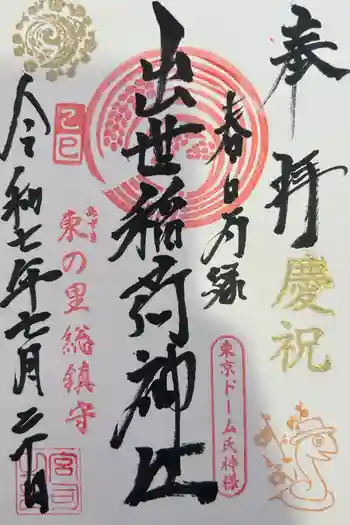 奉拝
慶祝
春日局縁
東京ドーム氏神様
出世稲荷神社
乙巳
あずま
東の里総鎮守
令和七年七月二十日